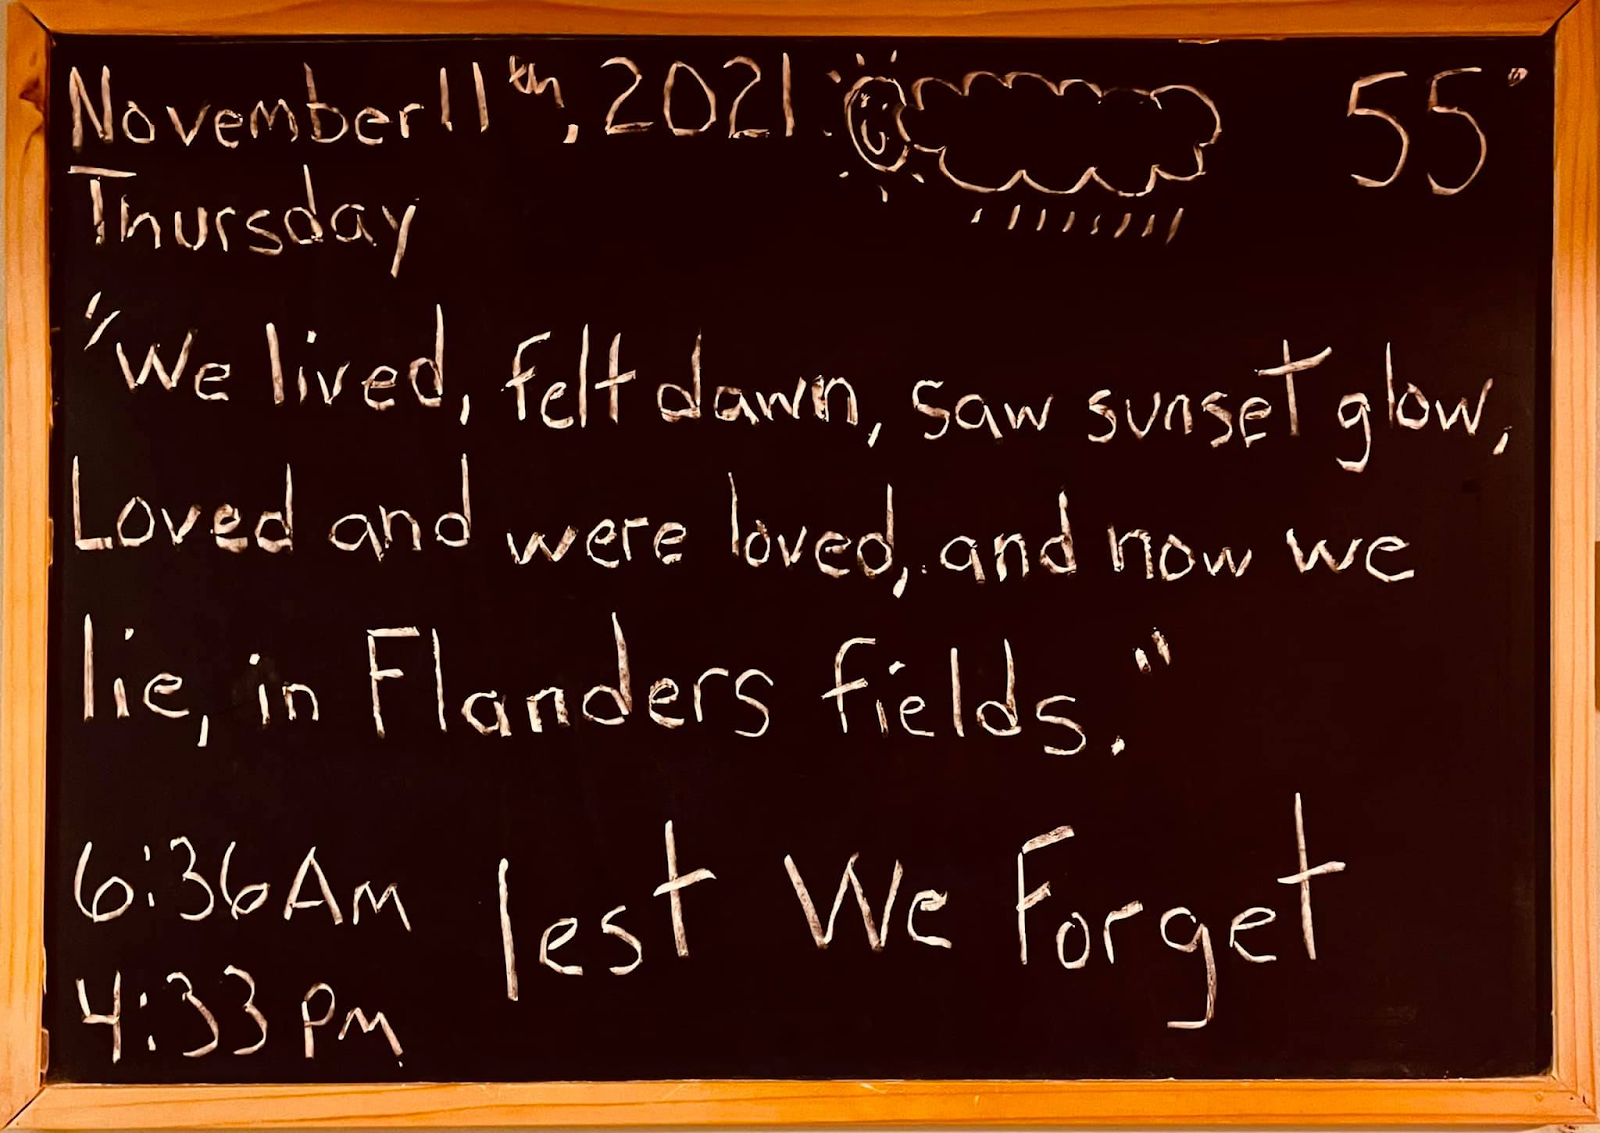 November 11th, 2021 55°
Thursday
"We lived, felt dawn, saw sunset glow,
Loved and were loved, and now we
lie, in Flanders fields."
6:36 AM lest We Forget
4:33 PM